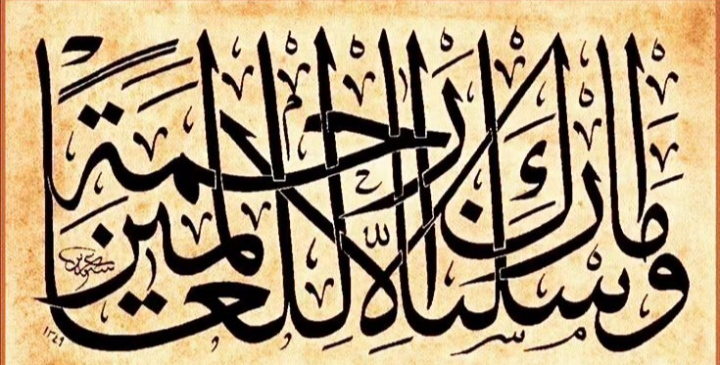 وَمَا أَرْسَلْنَاكَ إِلَّا رَحْمَةً لِلْعَالَمِينَ
١٣٤٩